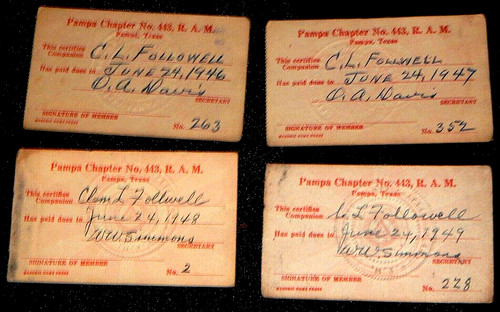 Pampa Chapter No. 443, R. A. M.
Pampa, Texas
This certifies
Companion C. L. Followell
Has paid dues to June 24, 1946
O. A. Davis
SECRETARY
SIGNATURE OF MEMBER
No. 263
Pampa Chapter No. 443, R. A. M.
Pampa, Texas
This certifies
Companion C. L. Follwell
Has paid dues to June 24, 1947
O. A. Davis
SECRETARY
SIGNATURE OF MEMBER
No. 352
Pampa Chapter No. 443, R. A. M.
Pampa, Texas
This certifies
Companion Clem L Follwell
Has paid dues to June 24, 1948
WW Simmons
SECRETARY
SIGNATURE OF MEMBER
No. 2
Pampa Chapter No. 443, R. A. M.
Pampa, Texas
This certifies
Companion C L Followell
Has paid dues to June 24, 1949
WW Simmons
SECRETARY
SIGNATURE OF MEMBER
No. 228